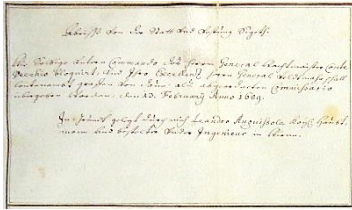 Abriss von der Statt und Vestung Sigeth.
Wie Selbige unter Commando des Herrn General Wachtmeisters Conte
Vecchio bloquirt, und Ihro Excellenz Herrn General Feldmarschall
Leutenandt Graffen von als Commissario
übergeben worden. den 13. February Anno 1689.
In grundt gelegt durch mich Leandro Anguissola Haubt
mann und bestelter Ingenieur in Wienn.